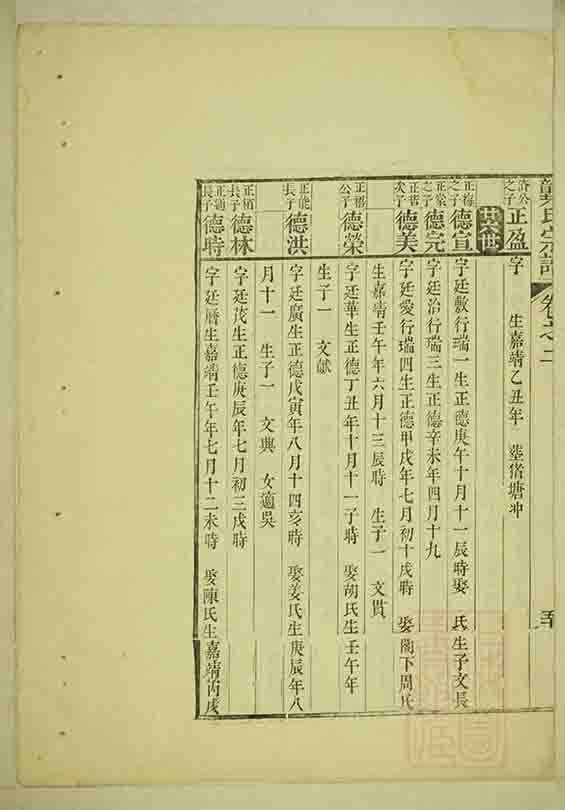 龔氏宗譜 卷之二
許公之子 正盈 字 生嘉靖乙丑年 塟 塘冲
廿六世
正梅之子 德宣 字廷敷行瑞一生正德庚午十月十一辰時娶 氏生子文長
正蒙之子 德完 字廷治行瑞三生正德辛未年四月十九
次子 德美 字廷愛行瑞四生正德甲戌年七月初十戌時 娶閣下周氏
生嘉靖壬午年六月十三辰時 生子一 文貫
公子 德榮 字廷華生正德丁丑年十月十一子時 娶胡氏生壬午年
生子一 文獻
正能長子 德洪 字廷廣生正德戊寅年八月十四亥時 娶姜氏生庚辰年八
月十一 生子一 文典 女適吳
長子 德林 字廷茂生正德庚辰年七月初三戌時
長子 德時 字廷曆生嘉靖壬午年七月十二未時 娶陳氏生嘉靖丙戌